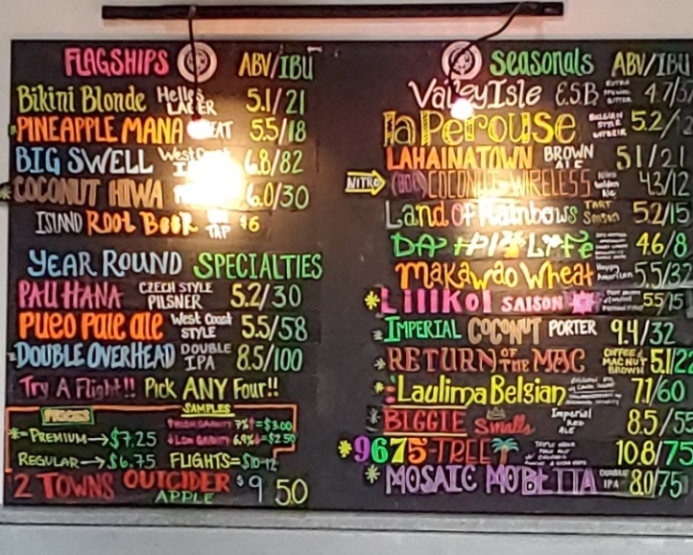 FLAGSHIPS ABV/IBU
Bikini Blonde Helles LAGER 5.1/21
PINEAPPLE MANA WHEAT 5.5/18
BIG SWELL West Coast IPA 6.8/82
COCONUT HIWA 6.0/30
ISLAND ROOT BEER $6
YEAR ROUND SPECIALTIES
PAU HANA CZECH STYLE PILSNER 5.2/30
PUEO PALE ALE West Coast STYLE 5.5/58
DOUBLE OVERHEAD DOUBLE IPA 8.5/100
Try A Flight!! Pick ANY Four!!
PRICES
* = PREMIUM → $7.25
REGULAR → $6.75
SAMPLES
FLIGHTS =
2 TOWNS OUTCIDER APPLE $9.50
Seasonals ABV/IBU
Valley Isle ESB 4.7/
La Perouse 5.2/
LAHAINATOWN BROWN ALE 5.1/21
NITRO
Land OF Rainbows 5.2/15
DAT HIZ LYFE 4.6/8
Makawao Wheat 5.5/
* Lilikoi SAISON 5.5/15
IMPERIAL COCONUT PORTER 9.4/32
RETURN OF THE MAC 5.1/22
* Laulima Belgian 7.1/60
* BIGGIE Smalls Imperial 8.5/55
* 9675 10.8/75
* MOSAIC MO BETTA DOUBLE IPA 8.0/75